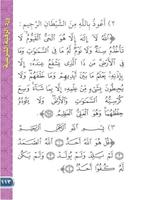 ٢) أَعُوذُ بِاللَّهِ مِنَ الشَّيْطَانِ الرَّجِيمِ :
﴿اللَّهُ لَا إِلَهَ إِلَّا هُوَ الْحَيُّ الْقَيُّومُ لَا
تَأْخُذُهُ سِنَةٌ وَلَا نَوْمٌ لَهُ مَا فِي السَّمَوَاتِ وَمَا
فِي الْأَرْضِ مَنْ ذَا الَّذِي يَشْفَعُ عِنْدَهُ إِلَّا
بِإِذْنِهِ يَعْلَمُ مَا بَيْنَ أَيْدِيهِمْ وَمَا خَلْفَهُمْ وَلَا
يُحِيطُونَ بِشَيْءٍ مِنْ عِلْمِهِ إِلَّا بِمَا شَاءَ وَسِعَ
كُرْسِيُّهُ السَّمَوَاتِ وَالْأَرْضَ وَلَا يَئُودُهُ
حِفْظُهُمَا وَهُوَ الْعَلِيُّ الْعَظِيمُ﴾
٣) بِسْمِ اللَّهِ الرَّحْمَنِ الرَّحِيمِ
﴿قُلْ هُوَ اللَّهُ أَحَدٌ اللَّهُ الصَّمَدُ
لَمْ يَلِدْ وَلَمْ يُولَدْ وَلَمْ يَكُنْ
لَهُ كُفُوًا أَحَدٌ﴾
١١٣